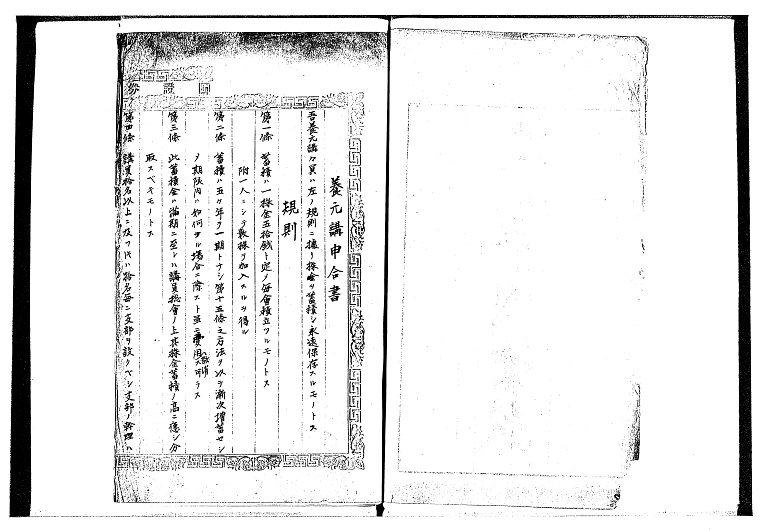 養元講申合書
吾養元講々員ハ左ノ規則ニ據リ株金ヲ蓄積シ永遠保存スルモノトス
規則
第一條 蓄積ハ一株金五拾銭ト定メ毎會積立ツルモノトス
附一人ニシテ数株ヲ加入スルヲ得ル
第二條 蓄積ハ五ヶ年ヲ一期トナシ第十五條之方法ヲ以テ漸次増蓄セシ
メ期限内ハ如何ナル場合ニ際スト雖ニ費用
第三條 此蓄積金ハ満期ニ至レハ講員総會ノ上其株金蓄積ノ高ニ應シ分
取スベキモノトス
第四條 講員拾名以上ニ及フ時ハ拾名毎ニ支部ヲ設クベシ支部ノ幹理ハ
證券